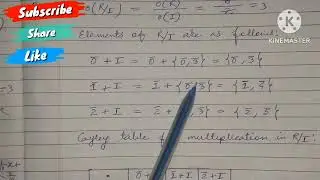 Subscribe
Share
Like
KINEMASTER
o(R/I) = o(R)/o(I) = 6/2 = 3
Elements of R/I are as follows:
0̄ + I = 0̄ + {0̄, 3̄} = {0̄, 3̄}
1̄ + I = 1̄ + {0̄, 3̄} = {1̄, 4̄}
2̄ + I = 2̄ + {0̄, 3̄} = {2̄, 5̄}
Cayley table for multiplication in R/I:
· 0̄+I 1̄+I 2̄+I